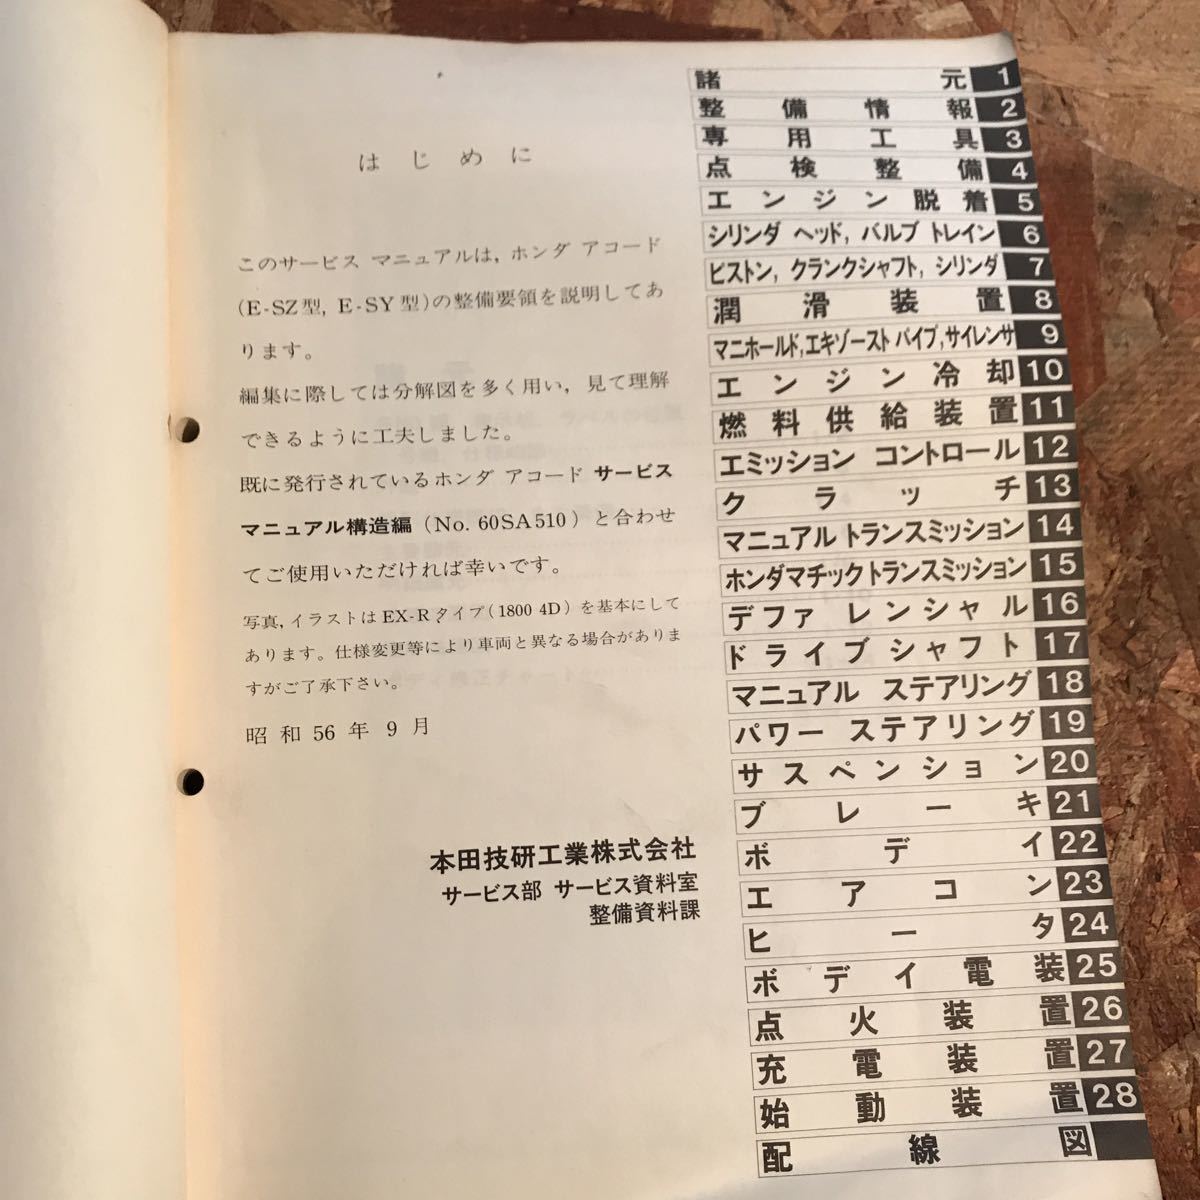 はじめに
このサービス マニュアルは, ホンダ アコード
(E-SZ型, E-SY型)の整備要領を説明してあ
ります。
編集に際しては分解図を多く用い, 見て理解
できるように工夫しました。
既に発行されているホンダ アコード サービス
マニュアル構造編 (No. 60SA510) と合わせ
てご使用いただければ幸いです。
写真, イラストは EX-R タイプ (1800 4D) を基本にして
あります。仕様変更等により車両と異なる場合がありま
すがご了承下さい。
昭和 56 年 9 月
本田技研工業株式会社
サービス部 サービス資料室
整備資料課
諸元 1
整備情報 2
専用工具 3
点検整備 4
エンジン脱着 5
シリンダ ヘッド, バルブ トレイン 6
ピストン, クランクシャフト, シリンダ 7
潤滑装置 8
マニホールド, エキゾースト パイプ, サイレンサ 9
エンジン冷却 10
燃料供給装置 11
エミッション コントロール 12
クラッチ 13
マニュアル トランスミッション 14
ホンダマチック トランスミッション 15
デファレンシャル 16
ドライブ シャフト 17
マニュアル ステアリング 18
パワー ステアリング 19
サスペンション 20
ブレーキ 21
ボデイ 22
エアコン 23
ヒータ 24
ボデイ電装 25
点火装置 26
充電装置 27
始動装置 28
配線図